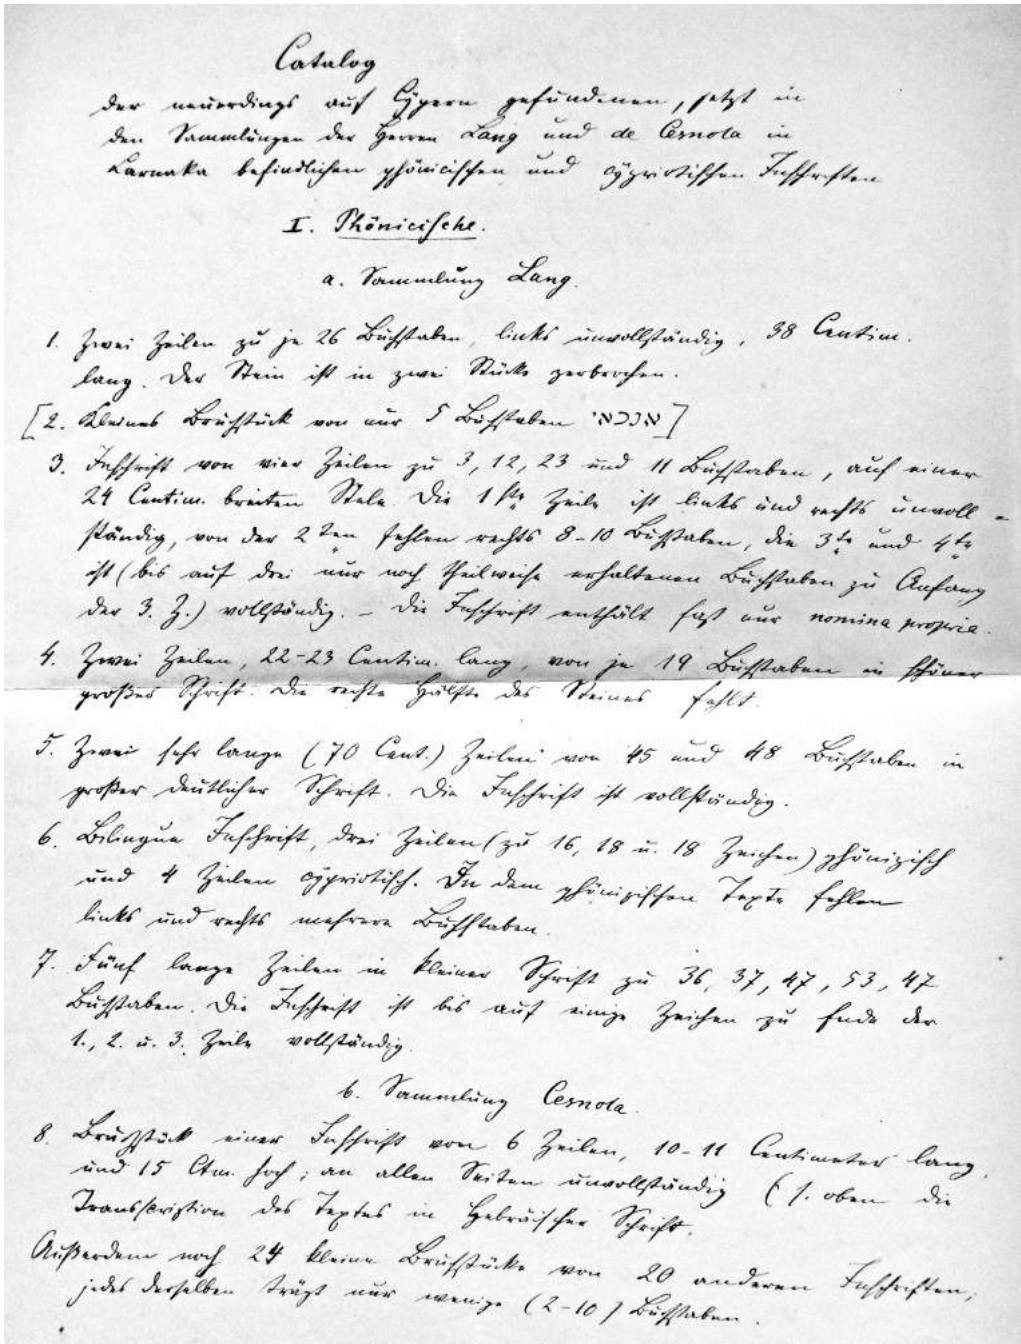 Catalog
der neuerdings auf Cÿpern gefundenen, jetzt in
den Sammlungen der Herren Lang und de Cesnola in
Larnaka befindlichen phönicischen und cÿpriotischen Inschriften
I. Phönicische.
a. Sammlung Lang.
1. Zwei Zeilen zu je 26 Buchstaben, links unvollständig, 38 Centim.
lang. Der Stein ist in zwei Stücke zerbrochen.
[2. Kleines Bruchstück von nur 5 Buchstaben אנכאי]
3. Inschrift von vier Zeilen zu 3, 12, 23 und 11 Buchstaben, auf einer
24 Centim. breiten Stele. Die 1ste Zeile ist links und rechts unvoll-
ständig, von der 2ten fehlen rechts 8-10 Buchstaben, die 3te und 4te
ist (bis auf drei nur noch theilweise erhaltenen Buchstaben zu Anfang
der 3. Z.) vollständig. – Die Inschrift enthält fast nur nomina propria.
4. Zwei Zeilen, 22-23 Centim. lang, von je 19 Buchstaben in schöner
großer Schrift. Die rechte Hälfte des Steines fehlt.
5. Zwei sehr lange (70 Cent.) Zeilen von 45 und 48 Buchstaben in
großer deutlicher Schrift. Die Inschrift ist vollständig.
6. Bilingue Inschrift, drei Zeilen (zu 16, 18 u. 18 Zeichen) phönizisch
und 4 Zeilen cÿpriotisch. In dem phönizischen Texte fehlen
links und rechts mehrere Buchstaben.
7. Fünf lange Zeilen in kleiner Schrift zu 36, 37, 47, 53, 47
Buchstaben. Die Inschrift ist bis auf einige Zeichen zu Ende der
1., 2. u. 3. Zeile vollständig.
b. Sammlung Cesnola.
8. Bruchstück einer Inschrift von 6 Zeilen, 10-11 Centimeter lang,
und 15 Ctm. hoch; an allen Seiten unvollständig (s. oben die
Transscription des Textes in Hebräischer Schrift.
Außerdem noch 24 kleine Bruchstücke von 20 anderen Inschriften,
jedes derselben trägt nur wenige (2-10) Buchstaben.